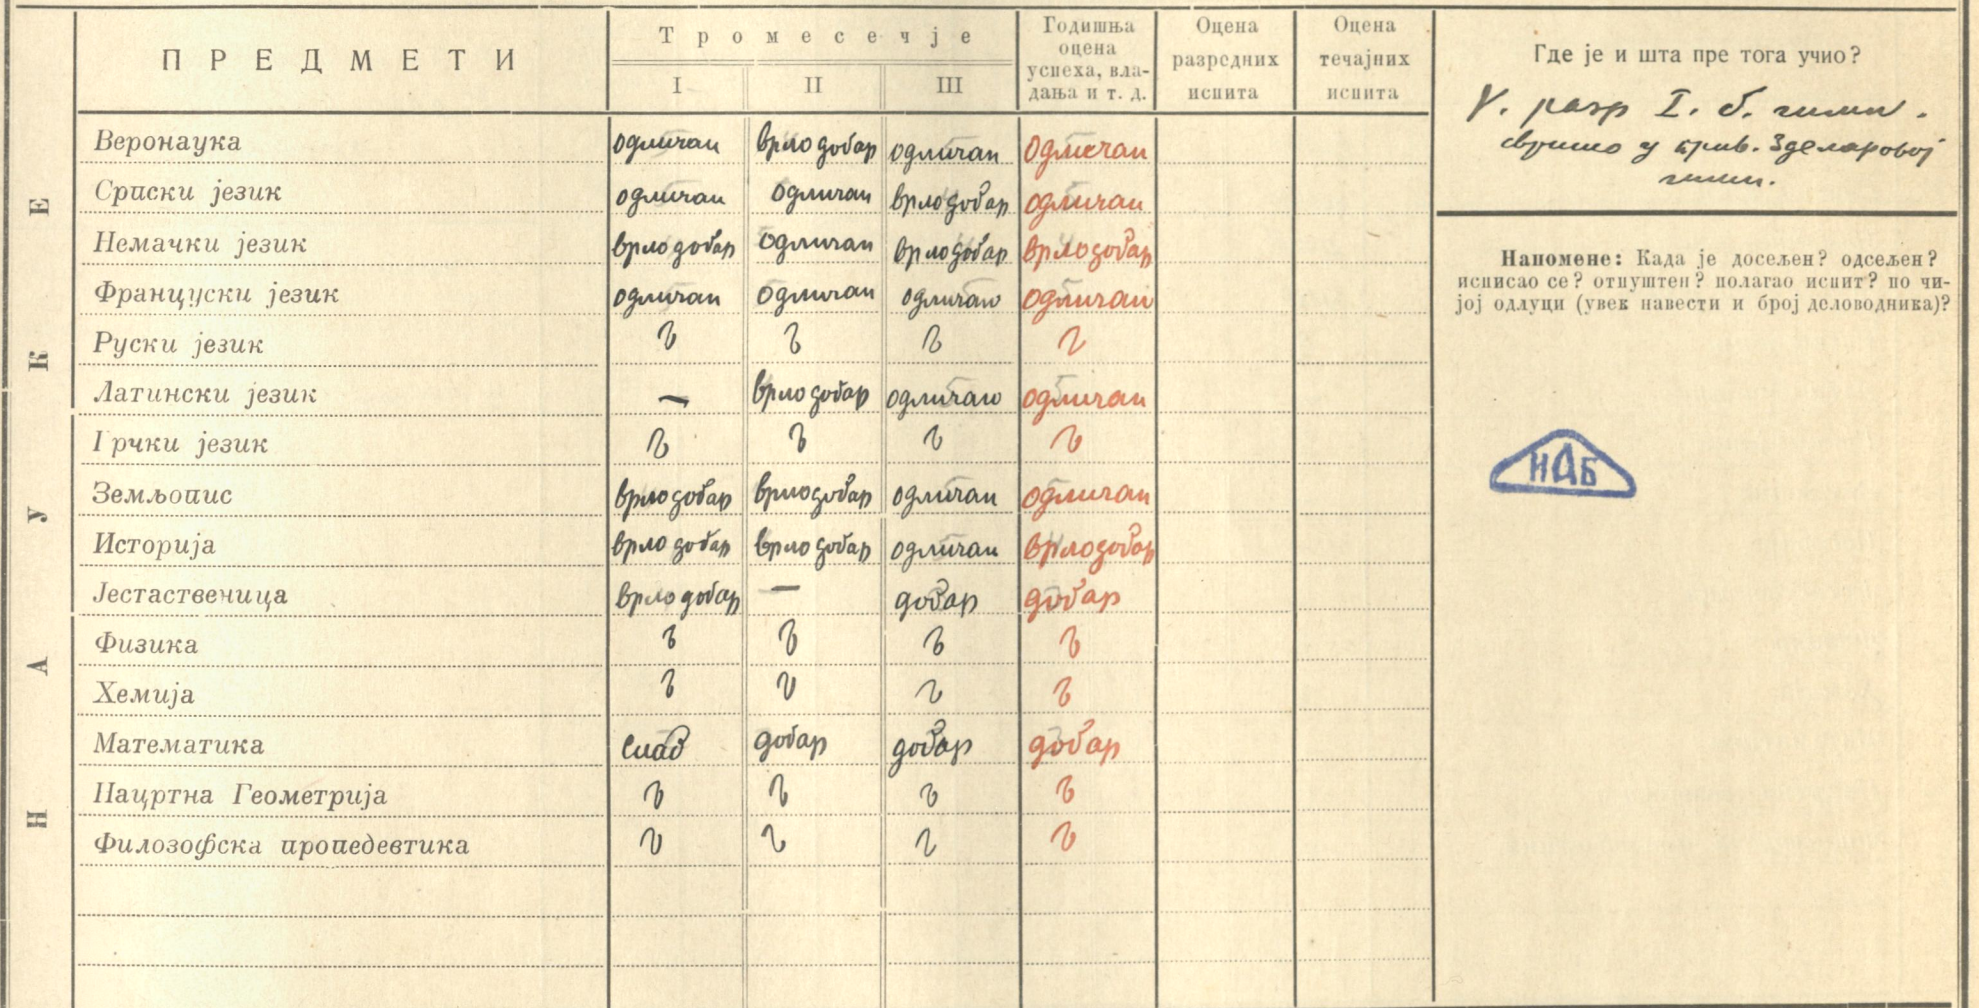 НАУКЕ
ПРЕДМЕТИ
Тромесечје
I II III
Годишња оцена успеха, вла-дања и т. д.
Оцена разредних испита
Оцена течајних испита
Веронаука одличан врло добар одличан одличан
Српски језик одличан одличан врло добар одличан
Немачки језик врло добар одличан врло добар врло добар
Француски језик одличан одличан одличан одличан
Руски језик
Латински језик — врло добар одличан одличан
Грчки језик
Земљопис врло добар врло добар одличан одличан
Историја врло добар врло добар одличан врло добар
Јестаственица врло добар — добар добар
Физика
Хемија
Математика слаб добар добар добар
Нацртна Геометрија
Филозофска пропедевтика
Где је и шта пре тога учио?
V. разр I. б. гимн.
свршио у прив. Зделаровој
гимн.
Напомене: Када је досељен? одсељен?
исписао се? отпуштен? полагао испит? по чи-
јој одлуци (увек навести и број деловодника)?
ИАБ